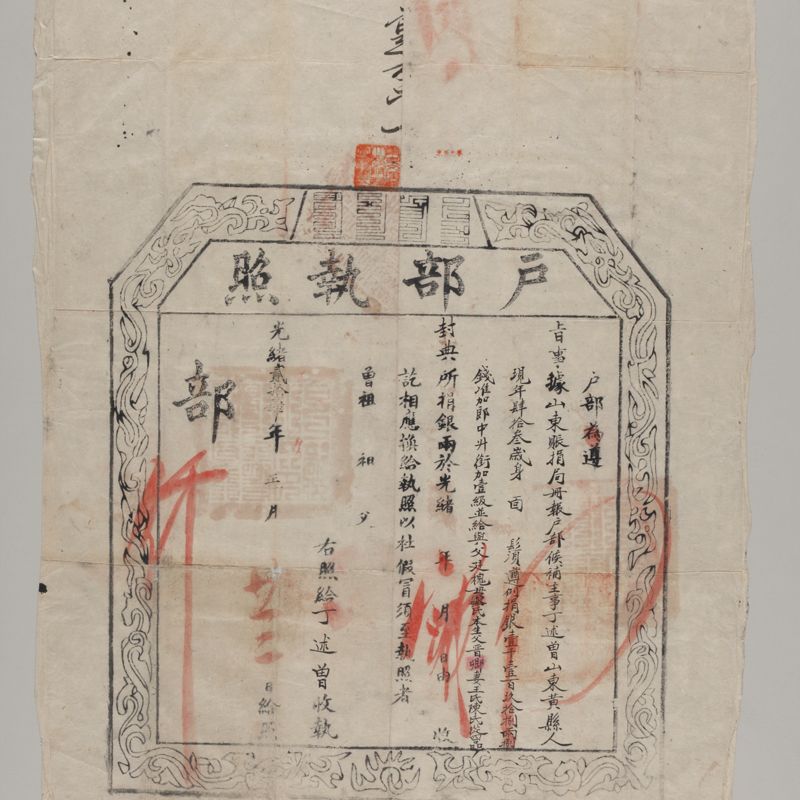 户部執照
户部為遵
旨事據山東賑捐局冊報户部候補主事丁述曾山東黃縣人
現年肆拾叁歲身 面 鬚須遵例捐銀壹千壹百玖拾捌兩
錢准加郎中升銜加壹級並給與父廷槐母 氏本生父晋卿妻王氏陳氏
封典所捐銀兩於光緒 年 月 日由 收
訖相應換給執照以杜假冒須至執照者
曾祖 祖 父
右照給丁述曾收執
光緒貳拾 年 正月 廿二 日給照
部